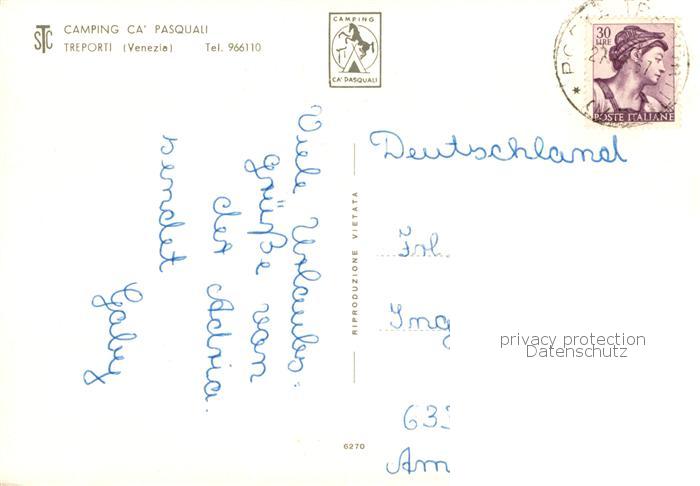 STC
CAMPING CA' PASQUALI
TREPORTI (Venezia) Tel. 966110
CAMPING
CA' PASQUALI
30
LIRE
POSTE ITALIANE
Viele Urlaubs-
grüße von
der Adria.
sendet
Gaby
RIPRODUZIONE VIETATA
6270
Deutschland
Frl.
Ing
633
Am
privacy protection
Datenschutz